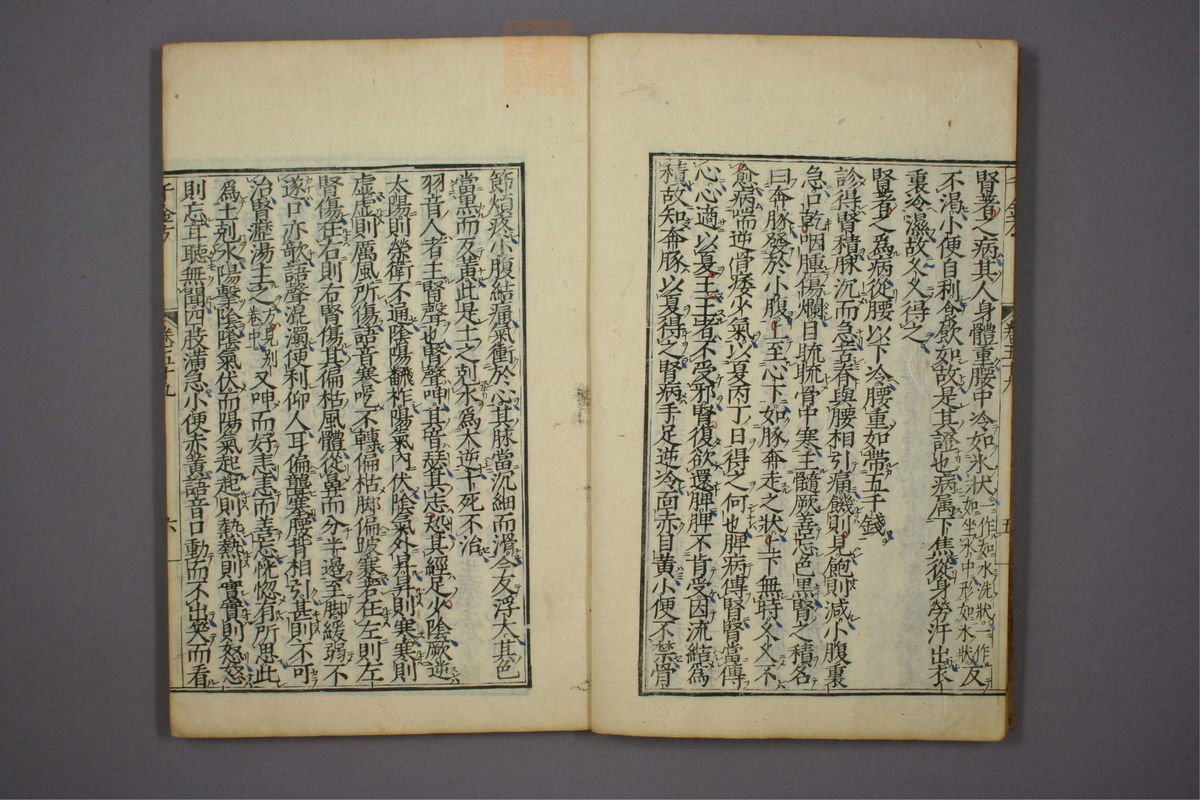 腎著之病其人身體重腰中冷如氷狀一作如水洗狀一作如坐水中形如氷狀反
不渴小便自利食飲如故是其證也病属下焦從身勞汗出衣
裏冷濕故久久得之
腎著之爲病從腰以下冷腰重如帶五千錢
診得腎積脉沉而急苦脊與腰相引痛饑則見飽則減小腹裏
急口乾咽腫傷爛目䀮䀮骨中寒主髓厥善忘色黒腎之積名
曰奔豚發於小腹上至心下如豚奔走之狀上下無時久久不
愈病喘逆骨痿少氣以夏丙丁日得之何也脾病傳腎腎當傳
心心適以夏王王者不受邪腎復欲還脾脾不肯受因流結爲
積故知奔豚以夏得之腎病手足逆冷面赤目黄小便不禁骨
節煩疼小腹結痛氣衝於心其脉當沉細而滑今反浮大其色
當黒而反黄此是土之剋水爲大逆十死不治
羽音人者主腎聲也腎聲呻其音瑟其志恐其經足少陰厥逆
太陽則榮衛不通陰陽飜祚陽氣內伏陰氣外昇昇則寒寒則
虛虛則厲風所傷語音蹇吃不轉偏枯脚偏跛蹇若在左則左
腎傷在右則右腎傷其偏枯風體從鼻而分半邊至脚緩弱不
遂口亦歌語聲混濁便利仰人耳偏聾塞腰背相引甚則不可
治腎瀝湯主之方見別卷中又呻而好恚恚而善忘恍惚有所思此
爲土剋水陽擊陰陰氣伏而陽氣起起則熱熱則實實則怒怒
則忘耳聽無聞四肢滿急小便赤黄語音口動而不出笑而看
卷五十九
六